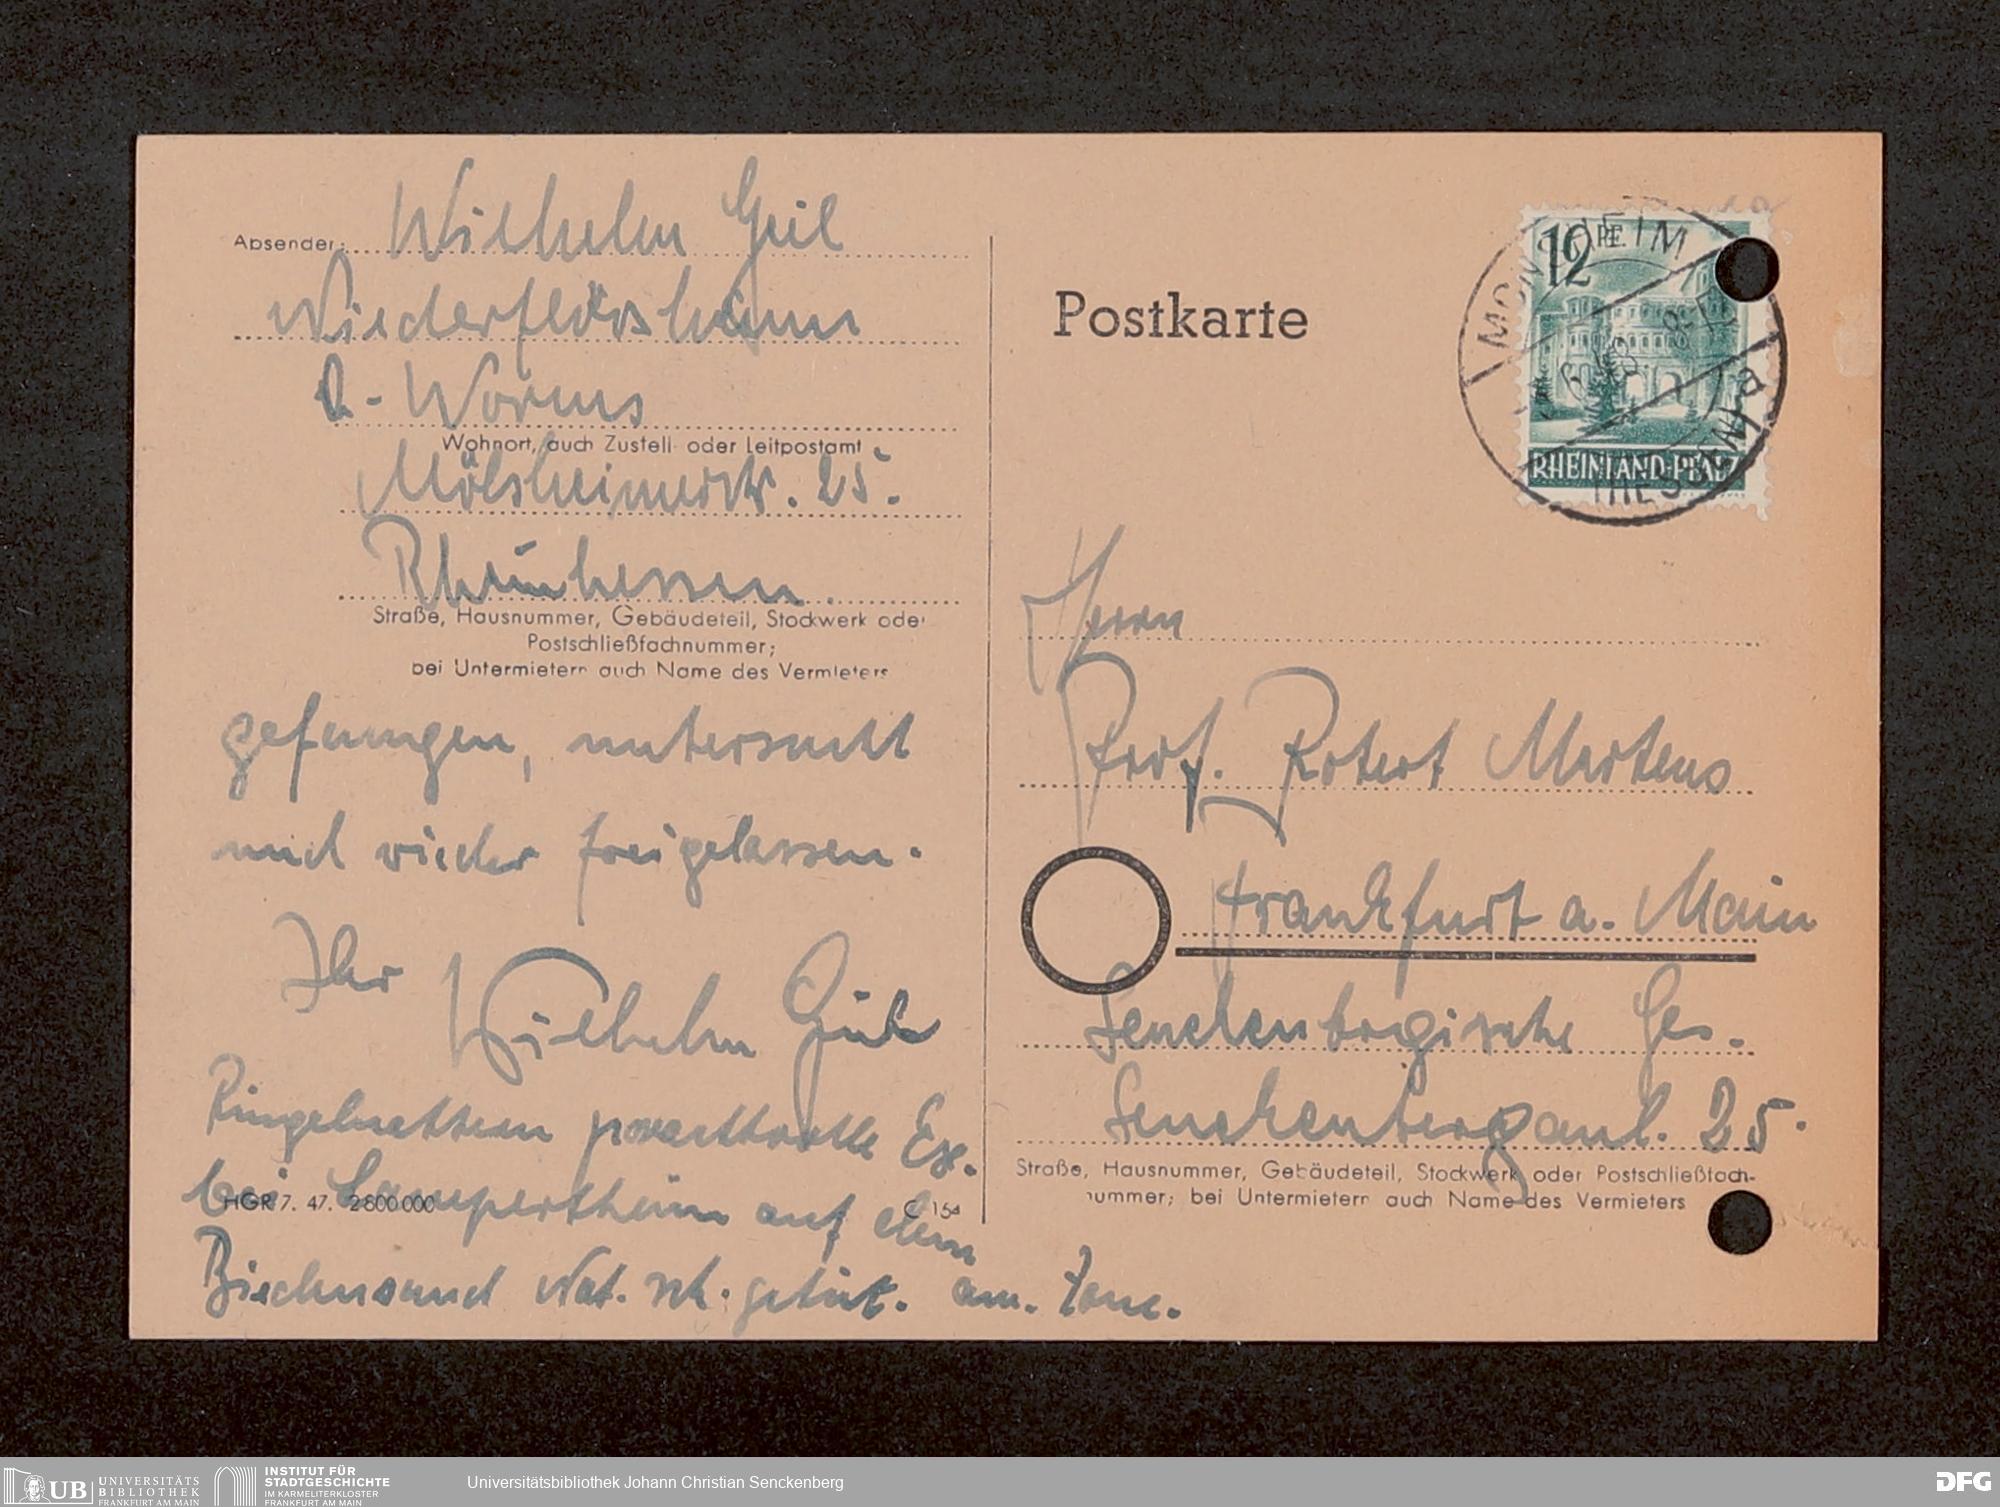 Absender: Wilhelm Geil
Niederflörsheim
b. Worms
Wohnort, auch Zustell- oder Leitpostamt
Mölsheimerstr. 25.
Rheinhessen.
Straße, Hausnummer, Gebäudeteil, Stockwerk oder
Postschließfachnummer;
bei Untermietern auch Name des Vermieters
gefangen, untersucht
und wieder freigelassen.
Ihr Wilhelm Geil
Ringelnattern prachtvolle Ex.
bei Lampertheim auf dem
Biedensand Nat. sch. gebiet. am. Zone.
HGR 7. 47. 2800000 C 154
Postkarte
12 PF.
RHEINLAND-PFALZ
MONSHEIM
(RHESSEN) a
Herrn
Prof. Robert Mertens
Frankfurt a. Main
Senckenbergische Ges.
Senckenberganl. 25.
Straße, Hausnummer, Gebäudeteil, Stockwerk oder Postschließfach-
nummer; bei Untermietern auch Name des Vermieters
UB UNIVERSITÄTS
BIBLIOTHEK
FRANKFURT AM MAIN
INSTITUT FÜR
STADTGESCHICHTE
IM KARMELITERKLOSTER
FRANKFURT AM MAIN
Universitätsbibliothek Johann Christian Senckenberg
DFG